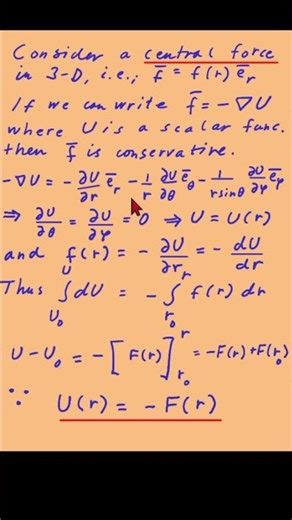 Consider a central force
in 3-D, i.e.; f̄ = f(r) ē_r
If we can write f̄ = -∇U
where U is a scalar func.
then f̄ is conservative.
-∇U = -∂U/∂r ē_r - 1/r ∂U/∂θ ē_θ - 1/(r sinθ) ∂U/∂φ ē_φ
⇒ ∂U/∂θ = ∂U/∂φ = 0 ⇒ U = U(r)
and f(r) = -∂U/∂r = -dU/dr
Thus ∫_{U_0}^{U} dU = -∫_{r_0}^{r} f(r) dr
U - U_0 = -[F(r)]_{r_0}^{r} = -F(r) + F(r_0)
∵ U(r) = -F(r)